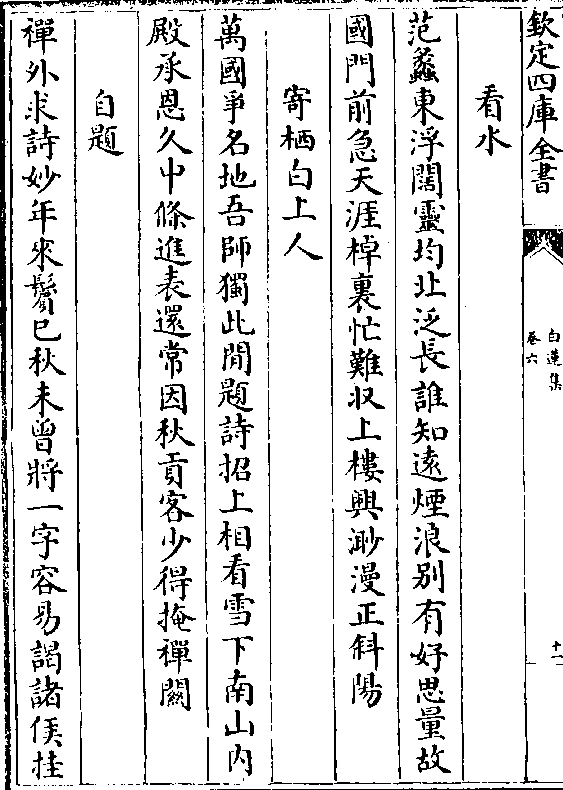 欽定四庫全書
白蓮集
卷六
十一
看水
范蠡東浮闊靈均北泛長誰知遠煙浪别有好思量故
國門前急天涯棹裏忙難收上樓興渺漫正斜陽
寄栖白上人
萬國爭名地吾師獨此閒題詩招上相看雪下南山内
殿承恩久中條進表還常因秋貢客少得掩禪關
自題
禪外求詩妙年來鬢已秋未曾將一字容易謁諸侯挂